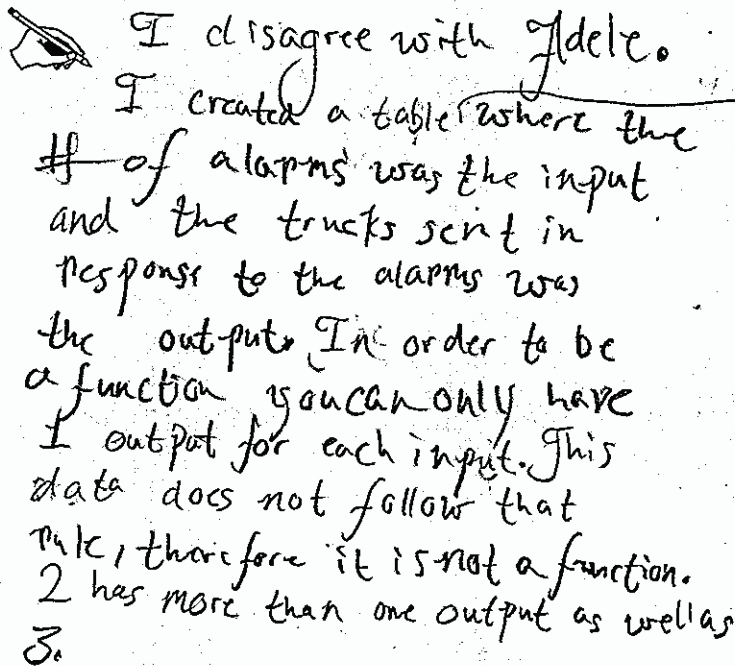 I disagree with Adele.
I created a table where the
# of alarms was the input
and the trucks sent in
response to the alarms was
the output. In order to be
a function you can only have
1 output for each input. This
data does not follow that
rule, therefore it is not a function.
2 has more than one output as well as
3.